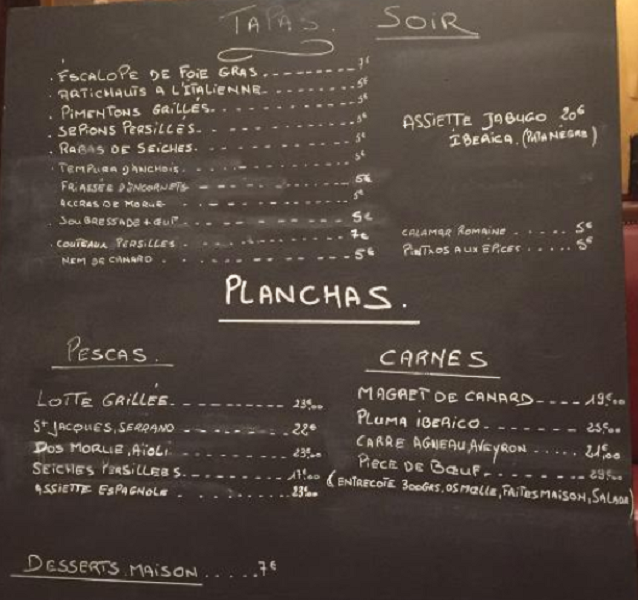 TAPAS. SOIR
. ESCALOPE DE FOIE GRAS ---------- 7€
. ARTICHAUTS A L'ITALIENNE ---------- 5€
. PIMENTONS GRILLÉS ---------- 5€
. SEPIONS PERSILLÉS ---------- 5€
. RABAS DE SEICHES ---------- 5€
. TEMPURA D'ANCHOIS ---------- 5€
. FRIASSÉE D'ENCORNETS ---------- 5€
. ACCRAS DE MORUE ---------- 5€
. SOUBRESSADE + ŒUF ---------- 5€
. COUTEAUX PERSILLÉS ---------- 7€
. NEM DE CANARD ---------- 5€
ASSIETTE JABUGO 20€
IBERICA. (PATA NEGRA)
CALAMAR ROMAINE ..... 5€
PINTXOS AUX EPICES ..... 5€
PLANCHAS.
PESCAS.
LOTTE GRILLÉE ---------- 23€00
St JACQUES, SERRANO ---------- 22€
DOS MORUE, AÏOLI ---------- 23€00
SEICHES PERSILLEES ---------- 17€00
ASSIETTE ESPAGNOLE .......... 23€00
CARNES
MAGRET DE CANARD ---- 19€00
PLUMA IBERICO ---------- 25€00
CARRE AGNEAU, AVEYRON ..... 21€00
PIECE DE BŒUF ----------
(ENTRECOTE 300GRS, OS MOELLE, FRITES MAISON, SALADE)
DESSERTS. MAISON ..... 7€